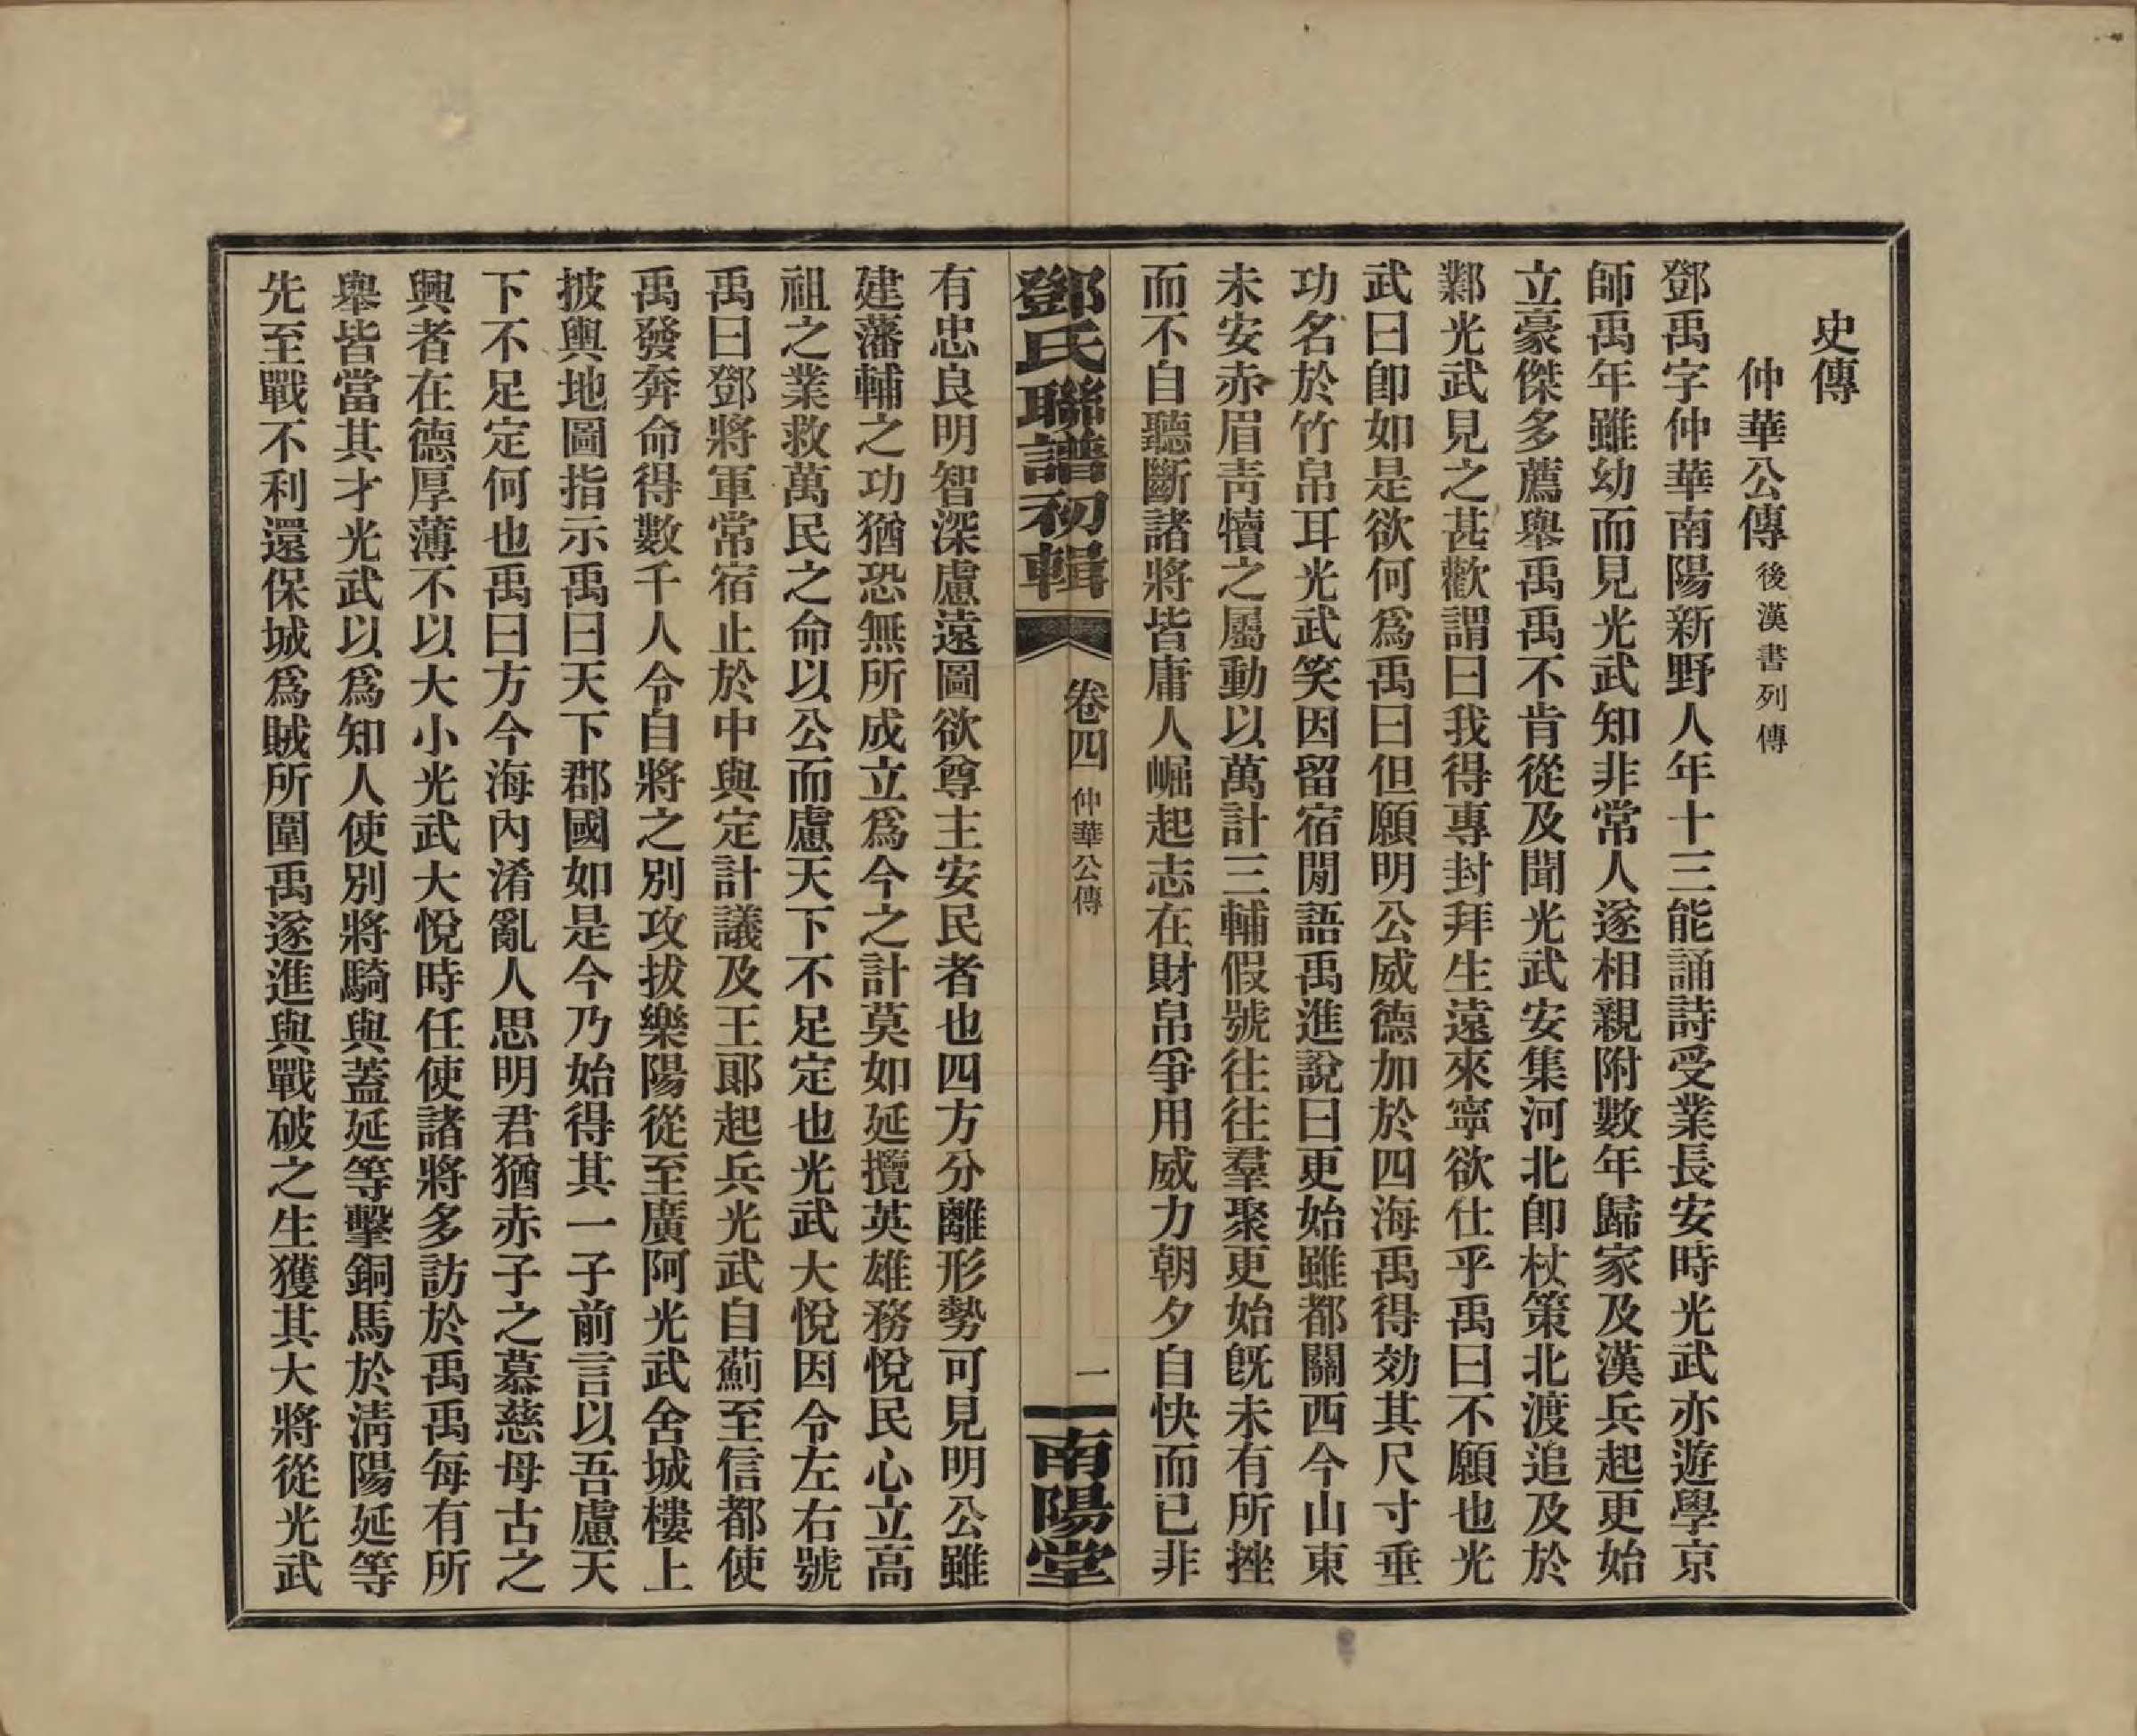 史傳
仲華公傳 後漢書列傳
鄧禹字仲華南陽新野人年十三能誦詩受業長安時光武亦遊學京
師禹年雖幼而見光武知非常人遂相親附數年歸家及漢兵起更始
立豪傑多薦舉禹禹不肯從及聞光武安集河北卽杖策北渡追及於
鄴光武見之甚歡謂曰我得專封拜生遠來寧欲仕乎禹曰不願也光
武曰卽如是欲何爲禹曰但願明公威德加於四海禹得効其尺寸垂
功名於竹帛耳光武笑因留宿閒語禹進說曰更始雖都關西今山東
未安赤眉靑犢之屬動以萬計三輔假號往往羣聚更始旣未有所挫
而不自聽斷諸將皆庸人崛起志在財帛爭用威力朝夕自快而已非
鄧氏聯譜初輯 卷四 仲華公傳 一 南陽堂
有忠良明智深慮遠圖欲尊主安民者也四方分離形勢可見明公雖
建藩輔之功猶恐無所成立爲今之計莫如延攬英雄務悅民心立高
祖之業救萬民之命以公而慮天下不足定也光武大悅因令左右號
禹曰鄧將軍常宿止於中與定計議及王郞起兵光武自薊至信都使
禹發奔命得數千人令自將之別攻拔樂陽從至廣阿光武舍城樓上
披輿地圖指示禹曰天下郡國如是今乃始得其一子前言以吾慮天
下不足定何也禹曰方今海內淆亂人思明君猶赤子之慕慈母古之
興者在德厚薄不以大小光武大悅時任使諸將多訪於禹禹每有所
舉皆當其才光武以爲知人使別將騎與蓋延等擊銅馬於淸陽延等
先至戰不利還保城爲賊所圍禹遂進與戰破之生獲其大將從光武